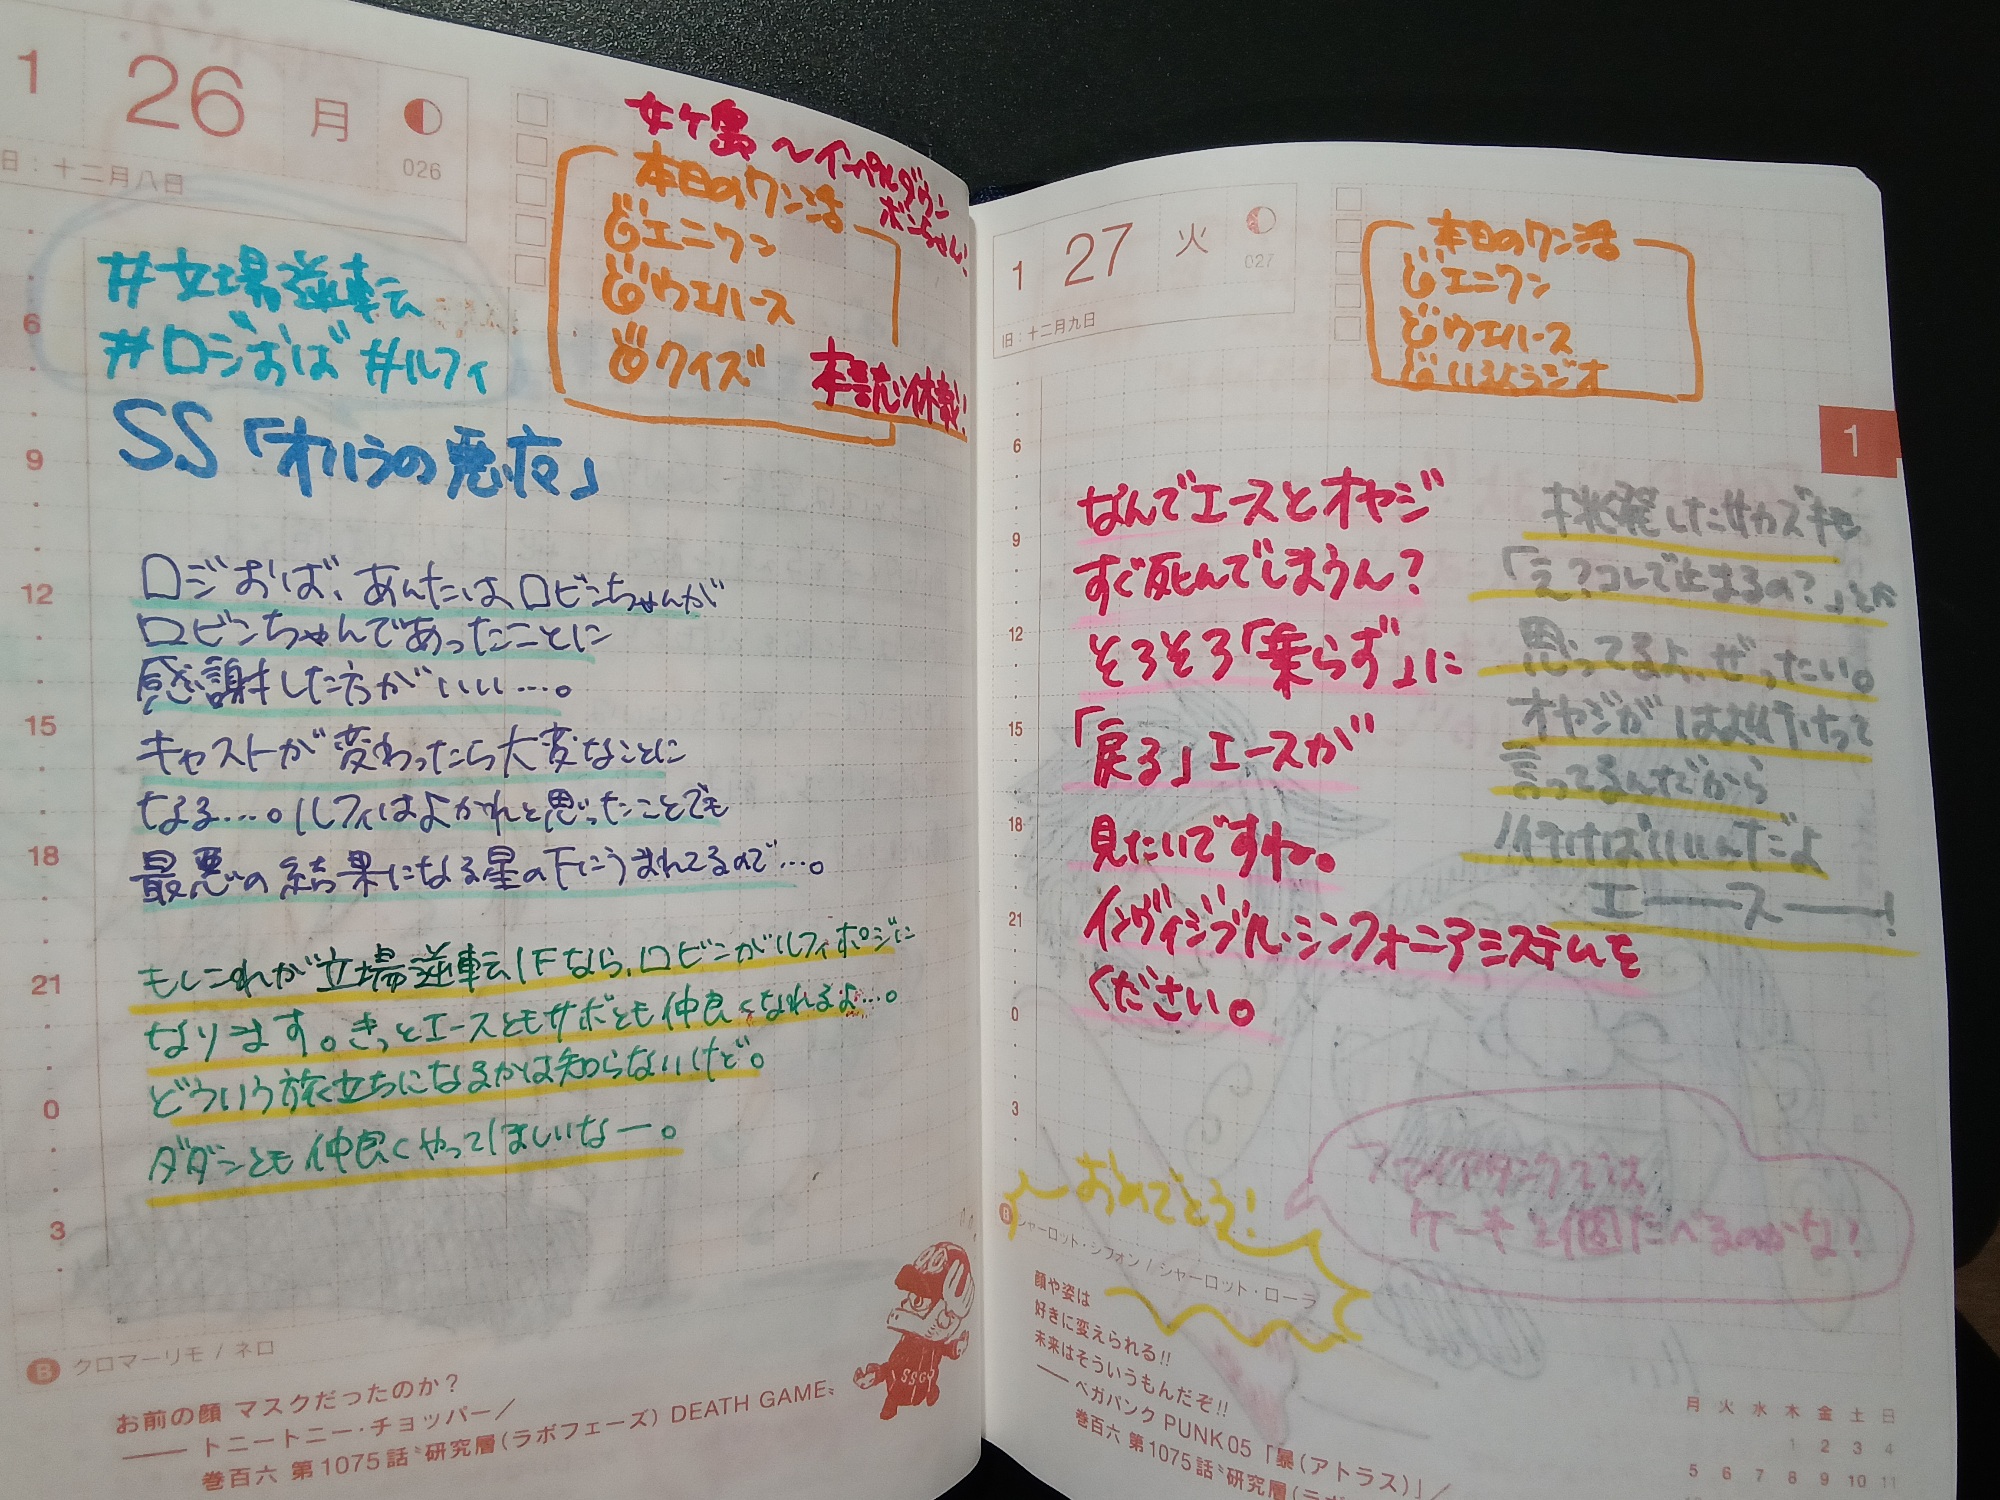 1 26 月
026
日：十二月八日
女ヶ島〜インペルダウン
ボンちゃん!
本日のワン活
エニワン
ウエハース
クイズ
本誌休載!
#立場逆転
#ロジおば #ルフィ
SS「オハラの悪夜」
6
9
12
15
18
21
0
3
ロジおば、あんたは、ロビンちゃんが
ロビンちゃんであったことに
感謝した方がいい…。
キャストが変わったら大変なことに
なる…。ルフィはよかれと思ったことでも
最悪の結果になる星の下にうまれてるので…。
もしこれが立場逆転IFなら、ロビンがルフィポジに
なります。きっとエースともサボとも仲良くなれるよ…。
どういう旅立ちになるかは知らないけど。
ダダンとも仲良くやってほしいなー。
B クロマーリモ / ネロ
お前の顔 マスクだったのか？
―― トニートニー・チョッパー／
巻百六 第1075話〝研究層(ラボフェーズ) DEATH GAME〟
SSG
1 27 火
027
旧：十二月九日
本日のワン活
エニワン
ウエハース
いるようラジオ
1
6
9
12
15
18
21
0
3
なんでエースとオヤジ
すぐ死んでしまうん？
そろそろ「乗らず」に
「戻る」エースが
見たいですね。
インヴィジブル・シンフォニアシステムを
ください。
挑発したサカズキも
「え？コレで止まるの？」とか
思ってるよ、ぜったい。
オヤジが
言ってるんだから
行けばいいんだよ
エーース――！
おめでとう！
ファイアタンクでは
ケーキと個たべるのかな？
B シャーロット・シフォン / シャーロット・ローラ
顔や姿は
好きに変えられる!!
未来はそういうもんだぞ!!
―― ベガパンク PUNK05「暴(アトラス)」／
巻百六 第1075話〝研究層(ラボ
月 火 水 木 金 土 日
1 2 3 4
5 6 7 8 9 10 11